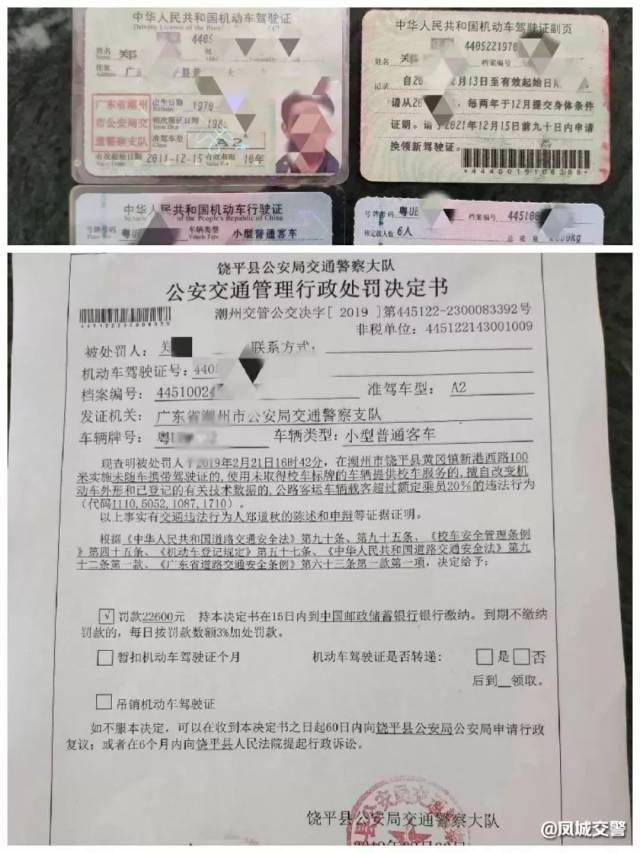 中华人民共和国机动车驾驶证
Driving License of the People's
郑
4405
广
县黄
广东省潮州
市公安局交
通警察支队
出生日期
Birthday
1970
初次领证日期
准驾车型
A2
Class
有效起始日期
2011-12-15
有效期限
10年
中华人民共和国机动车驾驶证副页
姓名
4405221970
档案编号
自20
2月13日至有效起始日期
请从20
每两年于12月提交身体条件
证明。请于2021年12月15前九十日内申请
换领新驾驶证。
记录
*4440015106308*
中华人民共和国机动车行驶证
of the People's Republic of China
号牌号码
粤
车辆类型
Vehicle Type
小型普通客车
号牌号码
粤
档案编号
核定载人数 6人
总质量
kg
饶平县公安局交通警察大队
公安交通管理行政处罚决定书
潮州交管公交决字[ 2019 ]第445122-2300083392号
非税单位: 445122143001009
被处罚人: 郑
联系方式:
机动车驾驶证号: 4405
档案编号: 44510024
准驾车型: A2
发证机关: 广东省潮州市公安局交通警察支队
车辆牌号: 粤
车辆类型: 小型普通客车
现查明被处罚人于2019年2月21日16时42分,在潮州市饶平县黄冈镇新港西路100
米实施未随车携带驾驶证的,使用未取得校车标牌的车辆提供校车服务的,擅自改变机
动车外形和已登记的有关技术数据的,公路客运车辆载客超过额定乘员20%的违法行为
(代码1110,5052,1087,1710)。
以上事实有交通违法行为人郑道秋的陈述和申辩等证据证明。
根据《中华人民共和国道路交通安全法》第九十条、第九十五条、《校车安全管理条例
》第四十五条、《机动车登记规定》第五十七条、《中华人民共和国道路交通安全法》第九
十二条第一款、《广东省道路交通安全条例》第六十三条第一款第一项,决定给予:
√ 罚款22600元 持本决定书在15日内到中国邮政储蓄银行银行缴纳。到期不缴纳
罚款的,每日按罚款数额3%加处罚款。
暂扣机动车驾驶证个月
机动车驾驶证是否转递: 是 否
后到 领取。
吊销机动车驾驶证
如不服本决定,可以在收到本决定书之日起60日内向饶平县公安局公安局申请行政
复议;或者在6个月内向饶平县人民法院提起行政诉讼。
饶平县公安局交通警察大队
@凤城交警